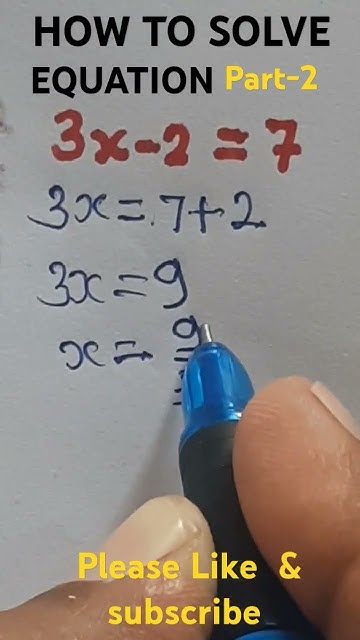 HOW TO SOLVE
EQUATION Part-2
3x-2=7
3x=7+2
3x=9
x=9
Please Like &
subscribe